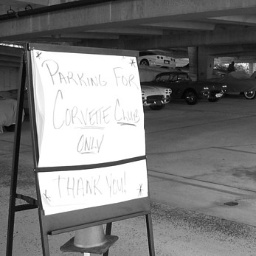 PARKING FOR
CORVETTE CLUB
ONLY
THANK YOU!